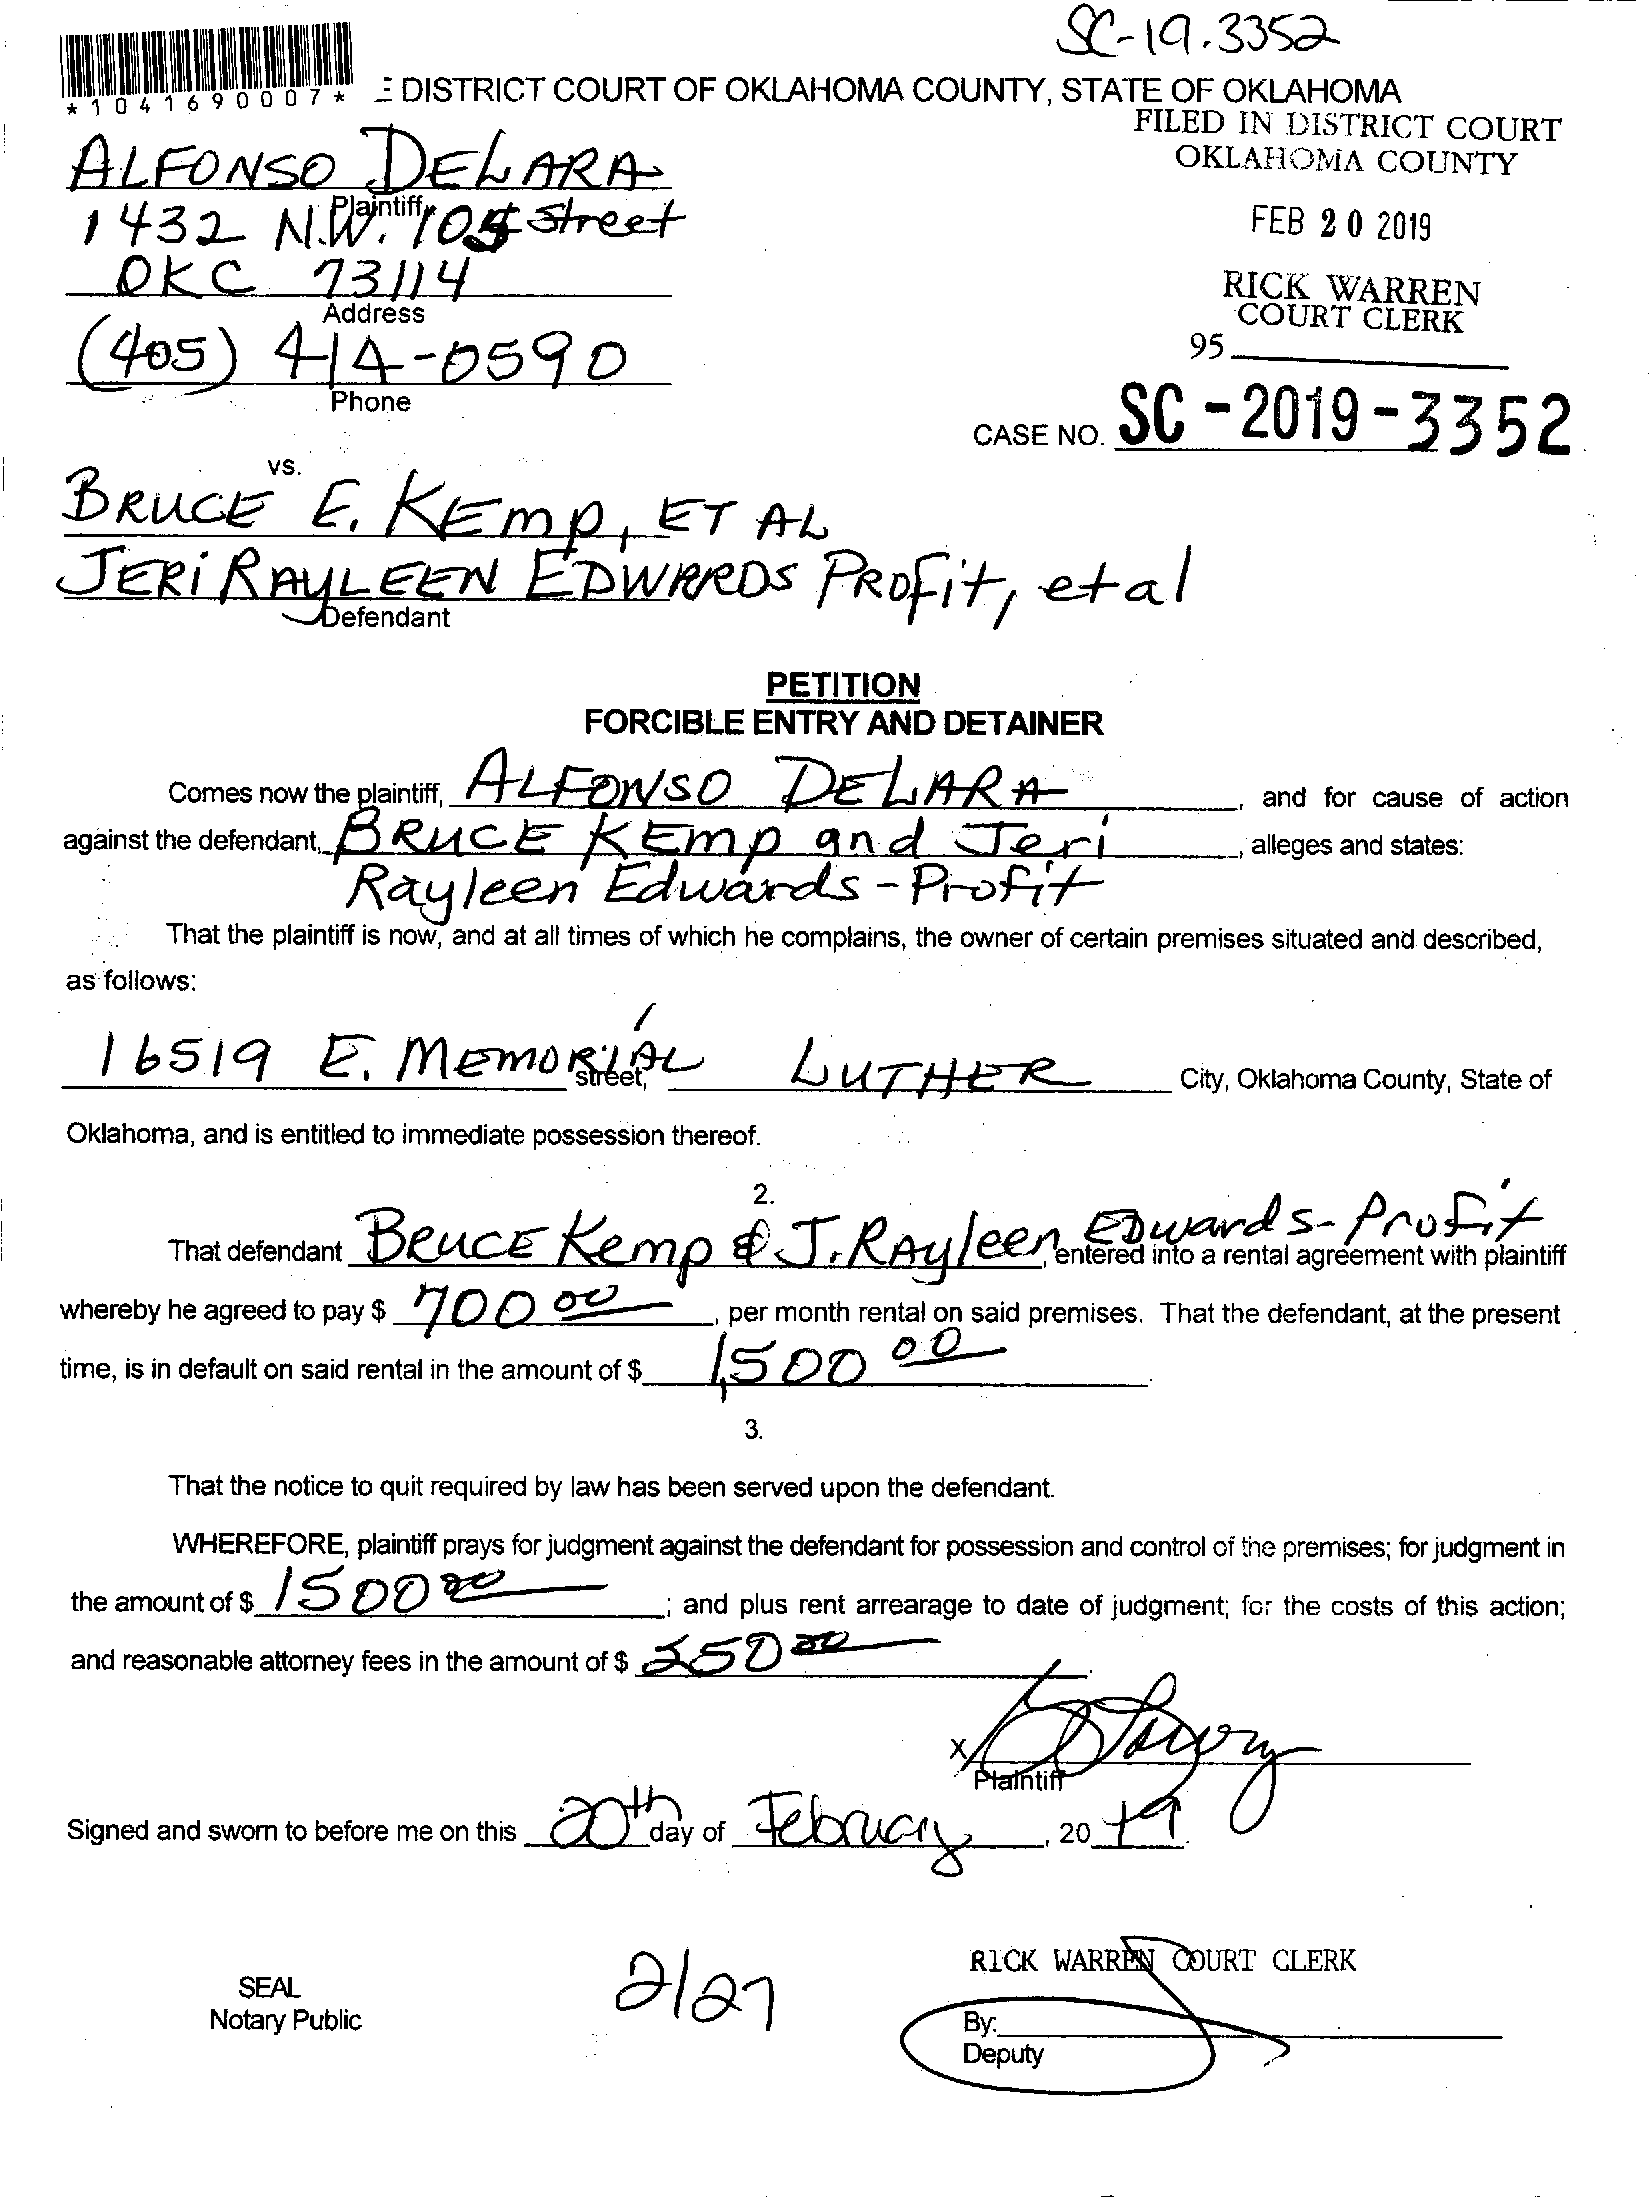 SC-19.3352
*1041690007*
DISTRICT COURT OF OKLAHOMA COUNTY, STATE OF OKLAHOMA
FILED IN DISTRICT COURT
OKLAHOMA COUNTY
FEB 20 2019
RICK WARREN
COURT CLERK
95
ALFONSO DELARA
Plaintiff
1432 N.W. 105 Street
OKC 73114
Address
(405) 414-0590
Phone
CASE NO. SC-2019-3352
vs.
BRUCE E. KEMP, ET AL
JERI RAYLEEN EDWARDS PROFIT, et al
Defendant
PETITION
FORCIBLE ENTRY AND DETAINER
Comes now the plaintiff, ALFONSO DELARA, and for cause of action
against the defendant, BRUCE KEMP and Jeri, alleges and states:
Rayleen Edwards-Profit
That the plaintiff is now, and at all times of which he complains, the owner of certain premises situated and described,
as follows:
16519 E. MEMORIAL street, LUTHER City, Oklahoma County, State of
Oklahoma, and is entitled to immediate possession thereof.
2.
That defendant BRUCE Kemp & J. RAyleen Edwards-Profit, entered into a rental agreement with plaintiff
whereby he agreed to pay $ 700 00, per month rental on said premises. That the defendant, at the present
time, is in default on said rental in the amount of $ 1,500 00
3.
That the notice to quit required by law has been served upon the defendant.
WHEREFORE, plaintiff prays for judgment against the defendant for possession and control of the premises; for judgment in
the amount of $ 1500 00; and plus rent arrearage to date of judgment; for the costs of this action;
and reasonable attorney fees in the amount of $ 50 00
X
Plaintiff
Signed and sworn to before me on this 20th day of February, 2019.
SEAL
Notary Public
2/27
RICK WARREN COURT CLERK
By:
Deputy